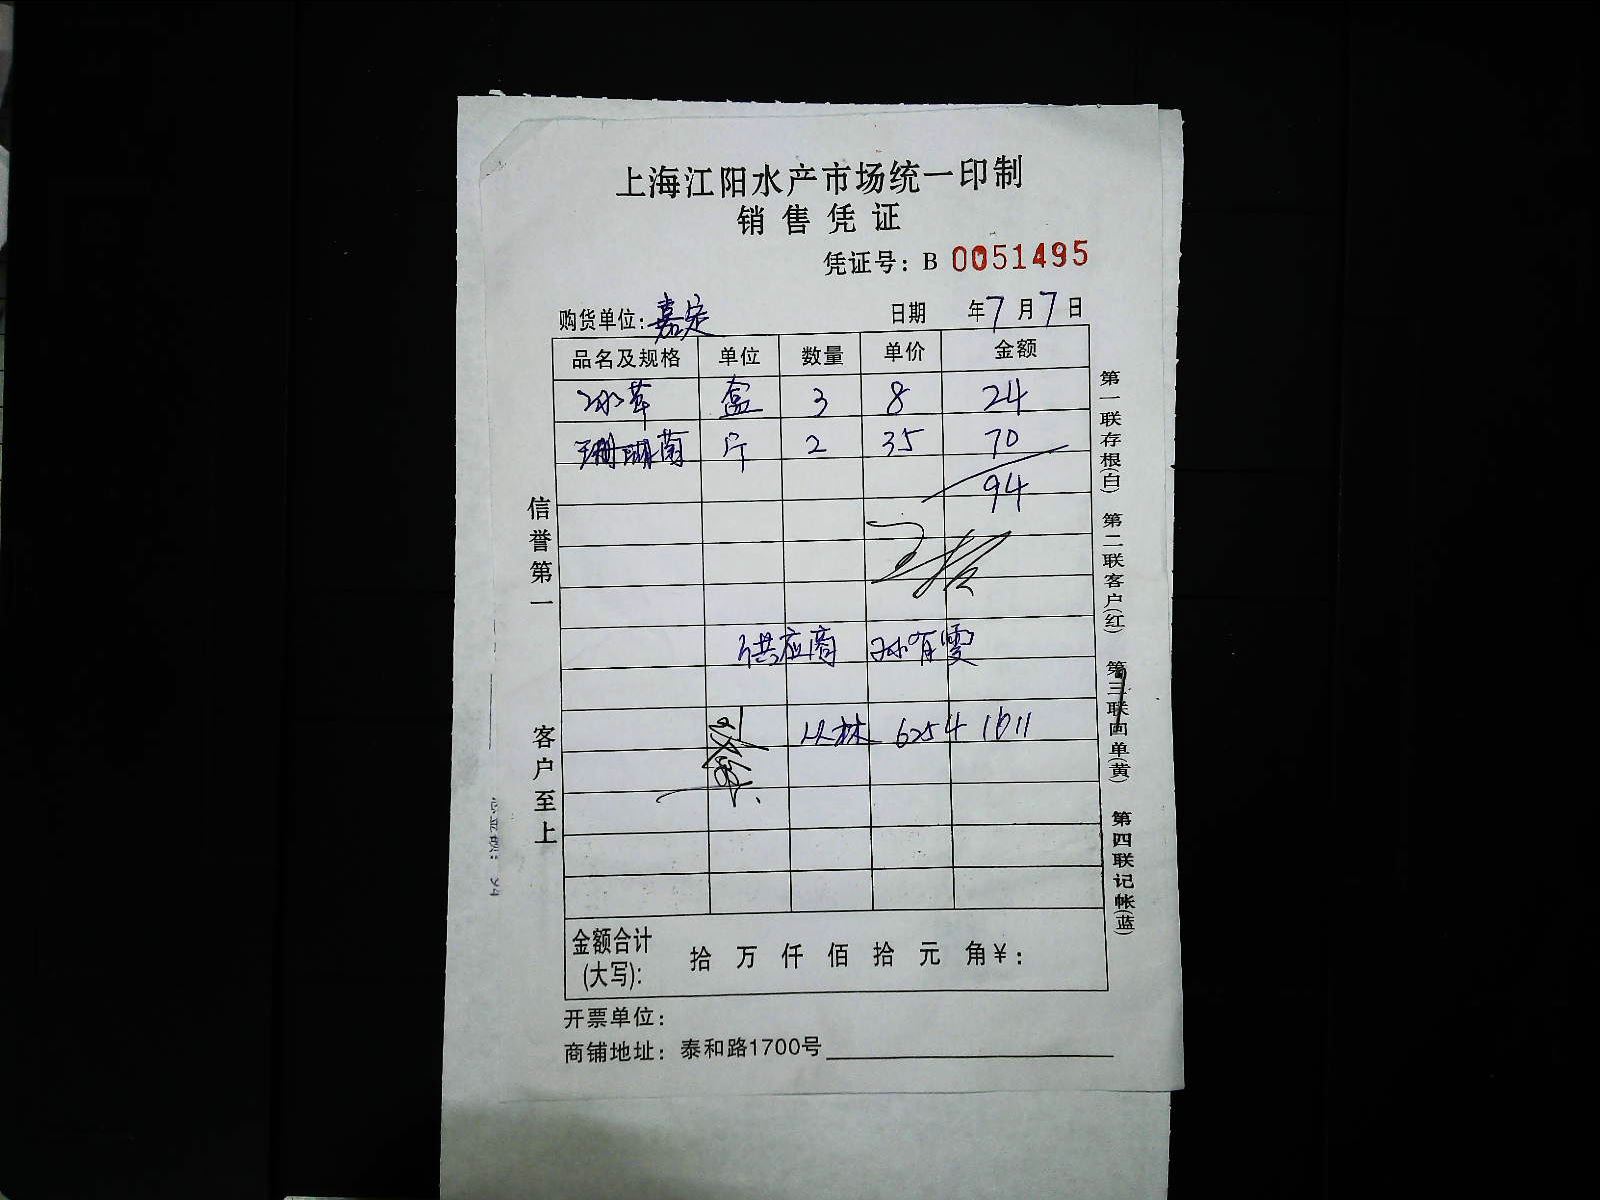 上海江阳水产市场统一印制
销售凭证
凭证号：B 0051495
购货单位：嘉定 日期 年7月7日
品名及规格 单位 数量 单价 金额
冰草 盒 3 8 24
珊瑚菌 斤 2 35 70
94
供应商 孙有雯
丛林 6254 1611
金额合计(大写)： 拾 万 仟 佰 拾 元 角 ¥：
开票单位：
商铺地址：泰和路1700号
信誉第一
客户至上
第一联存根(白)
第二联客户(红)
第三联回单(黄)
第四联记帐(蓝)